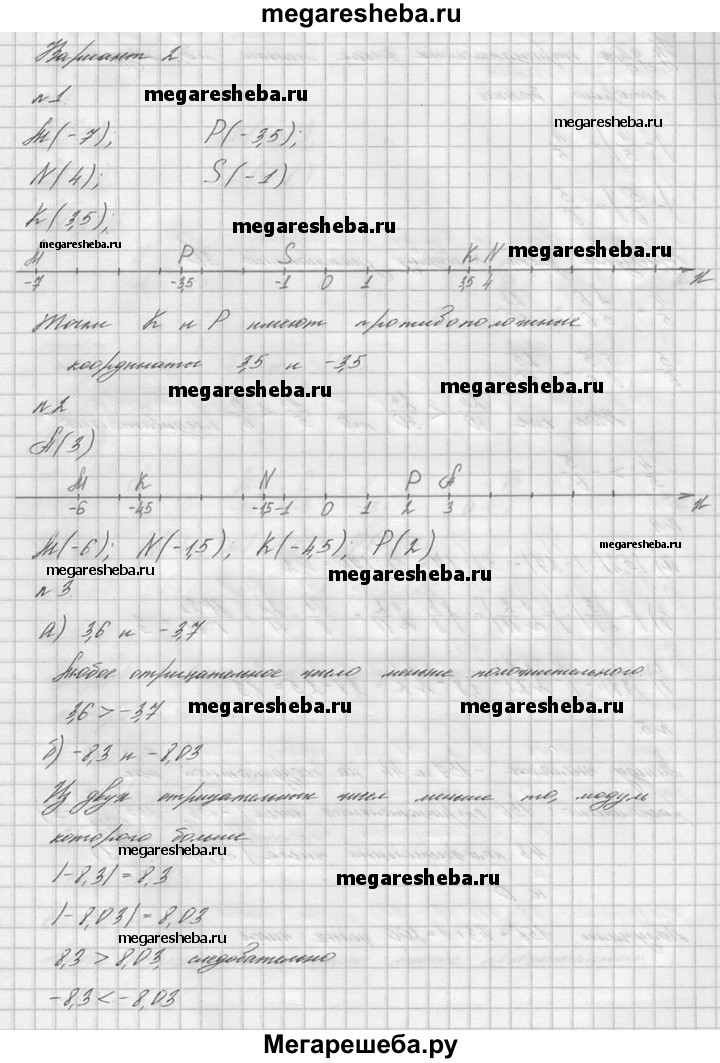 megaresheba.ru
Вариант 2
megaresheba.ru
n1.
megaresheba.ru
M(-7); P(-3,5);
N(4); S(-1)
K(3,5);
megaresheba.ru
megaresheba.ru
megaresheba.ru
M P S K N
-7 -3,5 -1 0 1 3,5 4 x
Точки K и P имеют противоположные
координаты 3,5 и -3,5
megaresheba.ru
megaresheba.ru
n2
A(3)
M K N P A
-6 -4,5 -1,5 -1 0 1 2 3 x
M(-6); N(-1,5); K(-4,5); P(2)
megaresheba.ru
megaresheba.ru
megaresheba.ru
n3
а) 3,6 и -3,7
Любое отрицательное число меньше положительного
3,6 > -3,7
megaresheba.ru
megaresheba.ru
б) -8,3 и -8,03
Из двух отрицательных чисел меньше то, модуль
которого больше
megaresheba.ru
|-8,3| = 8,3
megaresheba.ru
|-8,03| = 8,03
megaresheba.ru
8,3 > 8,03, следовательно
-8,3 < -8,03
Мегарешеба.ру